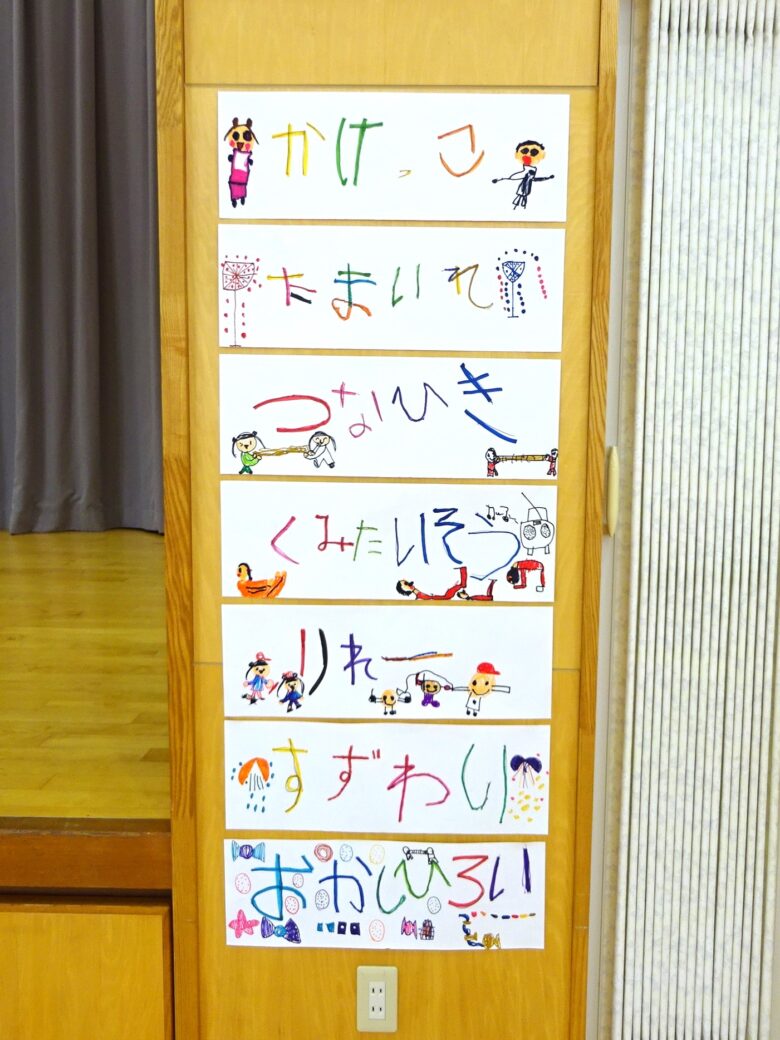 かけっこ
たまいれ
つなひき
くみたいそう
りれー
すずわり
おかしひろい